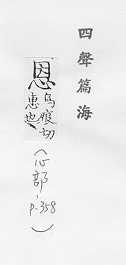 四聲篇海
恩烏痕切
惠也
(心部,
p.358)